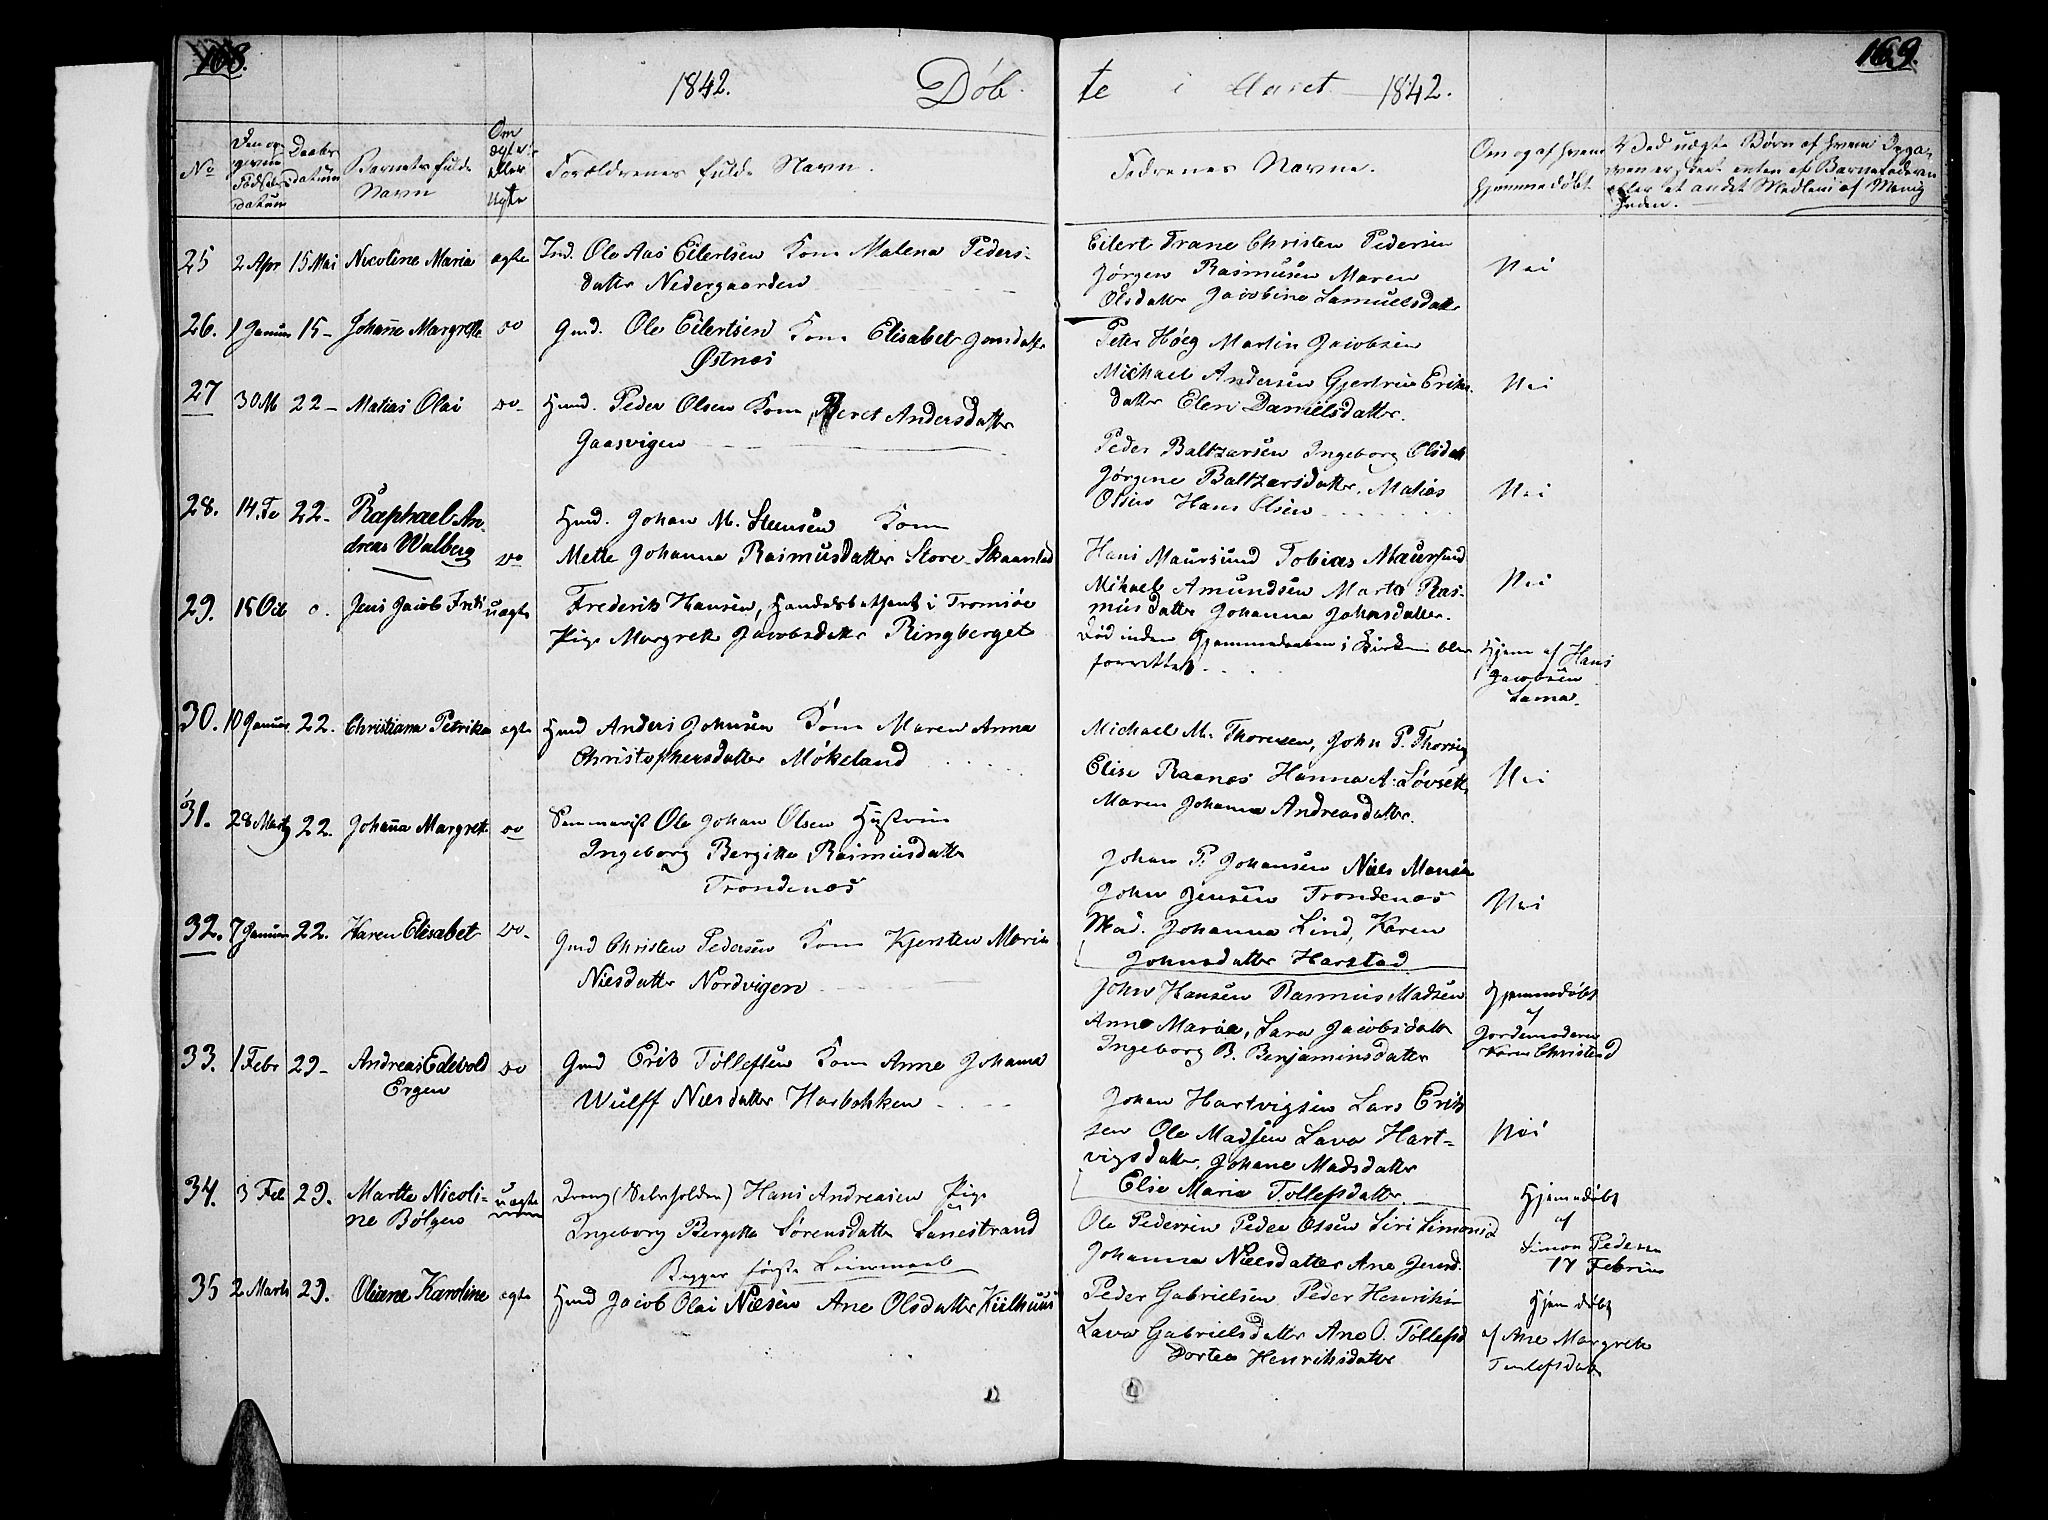 168.
1842. Døb
No
Daabs
datum
Barnets fulde
Navn
Om
ægte
eller
Uægte
Forældrenes fulde Navn.
25 2 Apr 15 Mai Nicoline Maria ægte Ind. Ole Aas Eilertsen Kone Malena Peders-
datter Nedergaarden
26. 1 Januar 15- Johañe Margrethe do Gmd. Ole Eilertsen Kone Elisabet Jonsdatr
Østnes
27 30 M 22- Matias Olai do- Hmd. Peder Olsen Kone Beret Andersdatter
Gaasvigen
28. 14. Fe 22- Raphael An-
dreas Walberg do
Hmd. Johan M. Steensen Kone
Mette Johanna Rasmusdatter Store-Skaanstad
29. 18 Oct o. Jens Jacob Fridr uægte Frederik Hansen, Handelsbetjent i Tromsøe
Pige Margrethe Jacobsdatter Ringberget
30. 10 Januar 22. Christiana Petrikke ægte Hmd Anders Johnsen Kone Maren Anna
Christophersdatter Møkeland
31. 28 Marts 22. Johaña Margreth do Seminarist Ole Johan Olsen Hustrue
Ingeborg Bergitte Rasmusdatter
Trondenæs
32. 7 Januar 22. Karen Elisabet do- Gmd Christen Pedersen Kone Kjersten Maria
Nielsdatter Nordvigen
33. 1 Febr 29- Andreas Edevold
Ergen do
Gmd Erik Tollefsen Kone Anne Johana
Wulff Nielsdatter Harbakken
34. 3 Feb 29. Marthe Nicoli-
ne Bølgen uægte
Dreng (Sabesholden) Hans Andreasen Pige
Ingeborg Bergitte Sørensdatter Sanestrand
Begges første Leiermaal
35 2 Marts 29. Oliane Karoline ægte Hmd Jacob Olai Nielsen Ane Olsdatter Kiilhuus
169.
te i Aaret 1842.
Fadrenes Navne.
Om og af hvem
hjemmedøbt
Ved uægte Børn af hvem Opga-
ven er skeet enten af Barnefaderen
eller et andet Medlem af Menig
heden.
Eilert Trane Christen Pedersen
Jørgen Rasmusen Maren
Olsdatter Jacobine Samuelsdatter
Nei
Peter Høeg Martin Jacobsen
Michael Andersen Gjertrue Eriks
datter Elen Danielsdatter.
Nei
Peder Baltzarsen Ingeborg Olsdatt
Jørgene Baltzarsdatter, Matias
Olsen Hans Olsen
Nei
Hans Maursund Tobias Maursund
Mikael Amundsen Marta Ras-
musdatter Johanna Johnsdatter.
Nei
Død inden Hjemmedaaben i Kirken blev
forrettet
Hjem af Hans
Jacobsen
Sama.
Michael M. Thoresen, John P. Thoresen
Elise Raanes Hanna A. Løvseth
Maren Johanna Andreasdatter.
Nei
Johan P. Johansen Niels Monsen
John Jensen Trondenæs
Mad. Johanna Lind, Karen
Johnsdatter Harstad
Nei
John Hansen Rasmus Madsen
Anne Maria, Sara Jacobsdatter
Ingeborg B. Benjaminsdatter
Hjemmedøbt
af
Jordemoderen
Karen Christensd
Johan Hartvigsen Lars Erik
sen Ole Madsen Lava Hart-
vigsdatter, Johane Madsdatter
Elise Maria Tollefsdatter.
Nei
Ole Pedersen Peder Olsen Siri Simonsd
Johanna Nielsdatter Ane Jensd.
Hjemdøbt
af
Simon Pedersen
17 Februar
Peder Gabrielsen Peder Henriksen
Lava Gabrielsdatter Ane O. Tollefsd
Dortea Henriksdatter
Hjemdøbt
af Ane Margrethe
Tenlefsdatr